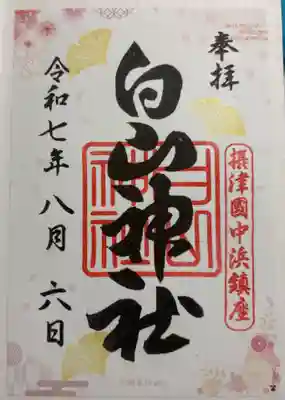 奉拝
摂津國中浜鎮座
白山神社
白山神社
令和七年八月六日